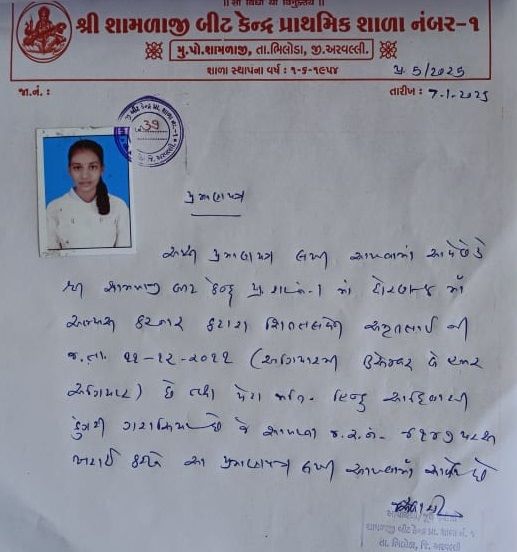 || સા વિદ્યા યા વિમુક્તયે ||
શ્રી શામળાજી બીટ કેન્દ્ર પ્રાથમિક શાળા નંબર-૧
મુ.પો.શામળાજી, તા.ભિલોડા, જી.અરવલ્લી.
શાળા સ્થાપના વર્ષ : ૧-૬-૧૯૫૪
પ્ર. 5/2025
જા.નં. :
તારીખ : 7-1-2025
39
પ્રમાણપત્ર
આથી પ્રમાણપત્ર લખી આપવામાં આવે છે કે
શ્રી શામળાજી બીટ કેન્દ્ર પ્રા. શા. નં-1 માં ધોરણ માં
અભ્યાસ કરનાર કટારા અમૃતભાઈ ની
જ. તા. ૧૧-૧૨-૨૦૧૧ (અગિયારમી ડિસેમ્બર બે હજાર
અગિયાર) છે તથા પેટા જાતિ- હિન્દુ આદિવાસી
ડુંગરી ગરાસિયા છે જે શાળાના જ.ર.નં-
ખરાઈ કરીને આ પ્રમાણપત્ર લખી આપવામાં આવેલ છે
શામળાજી બીટ કેન્દ્ર પ્રા. શાળા નં. ૧
તા. ભિલોડા, જિ. અરવલ્લી